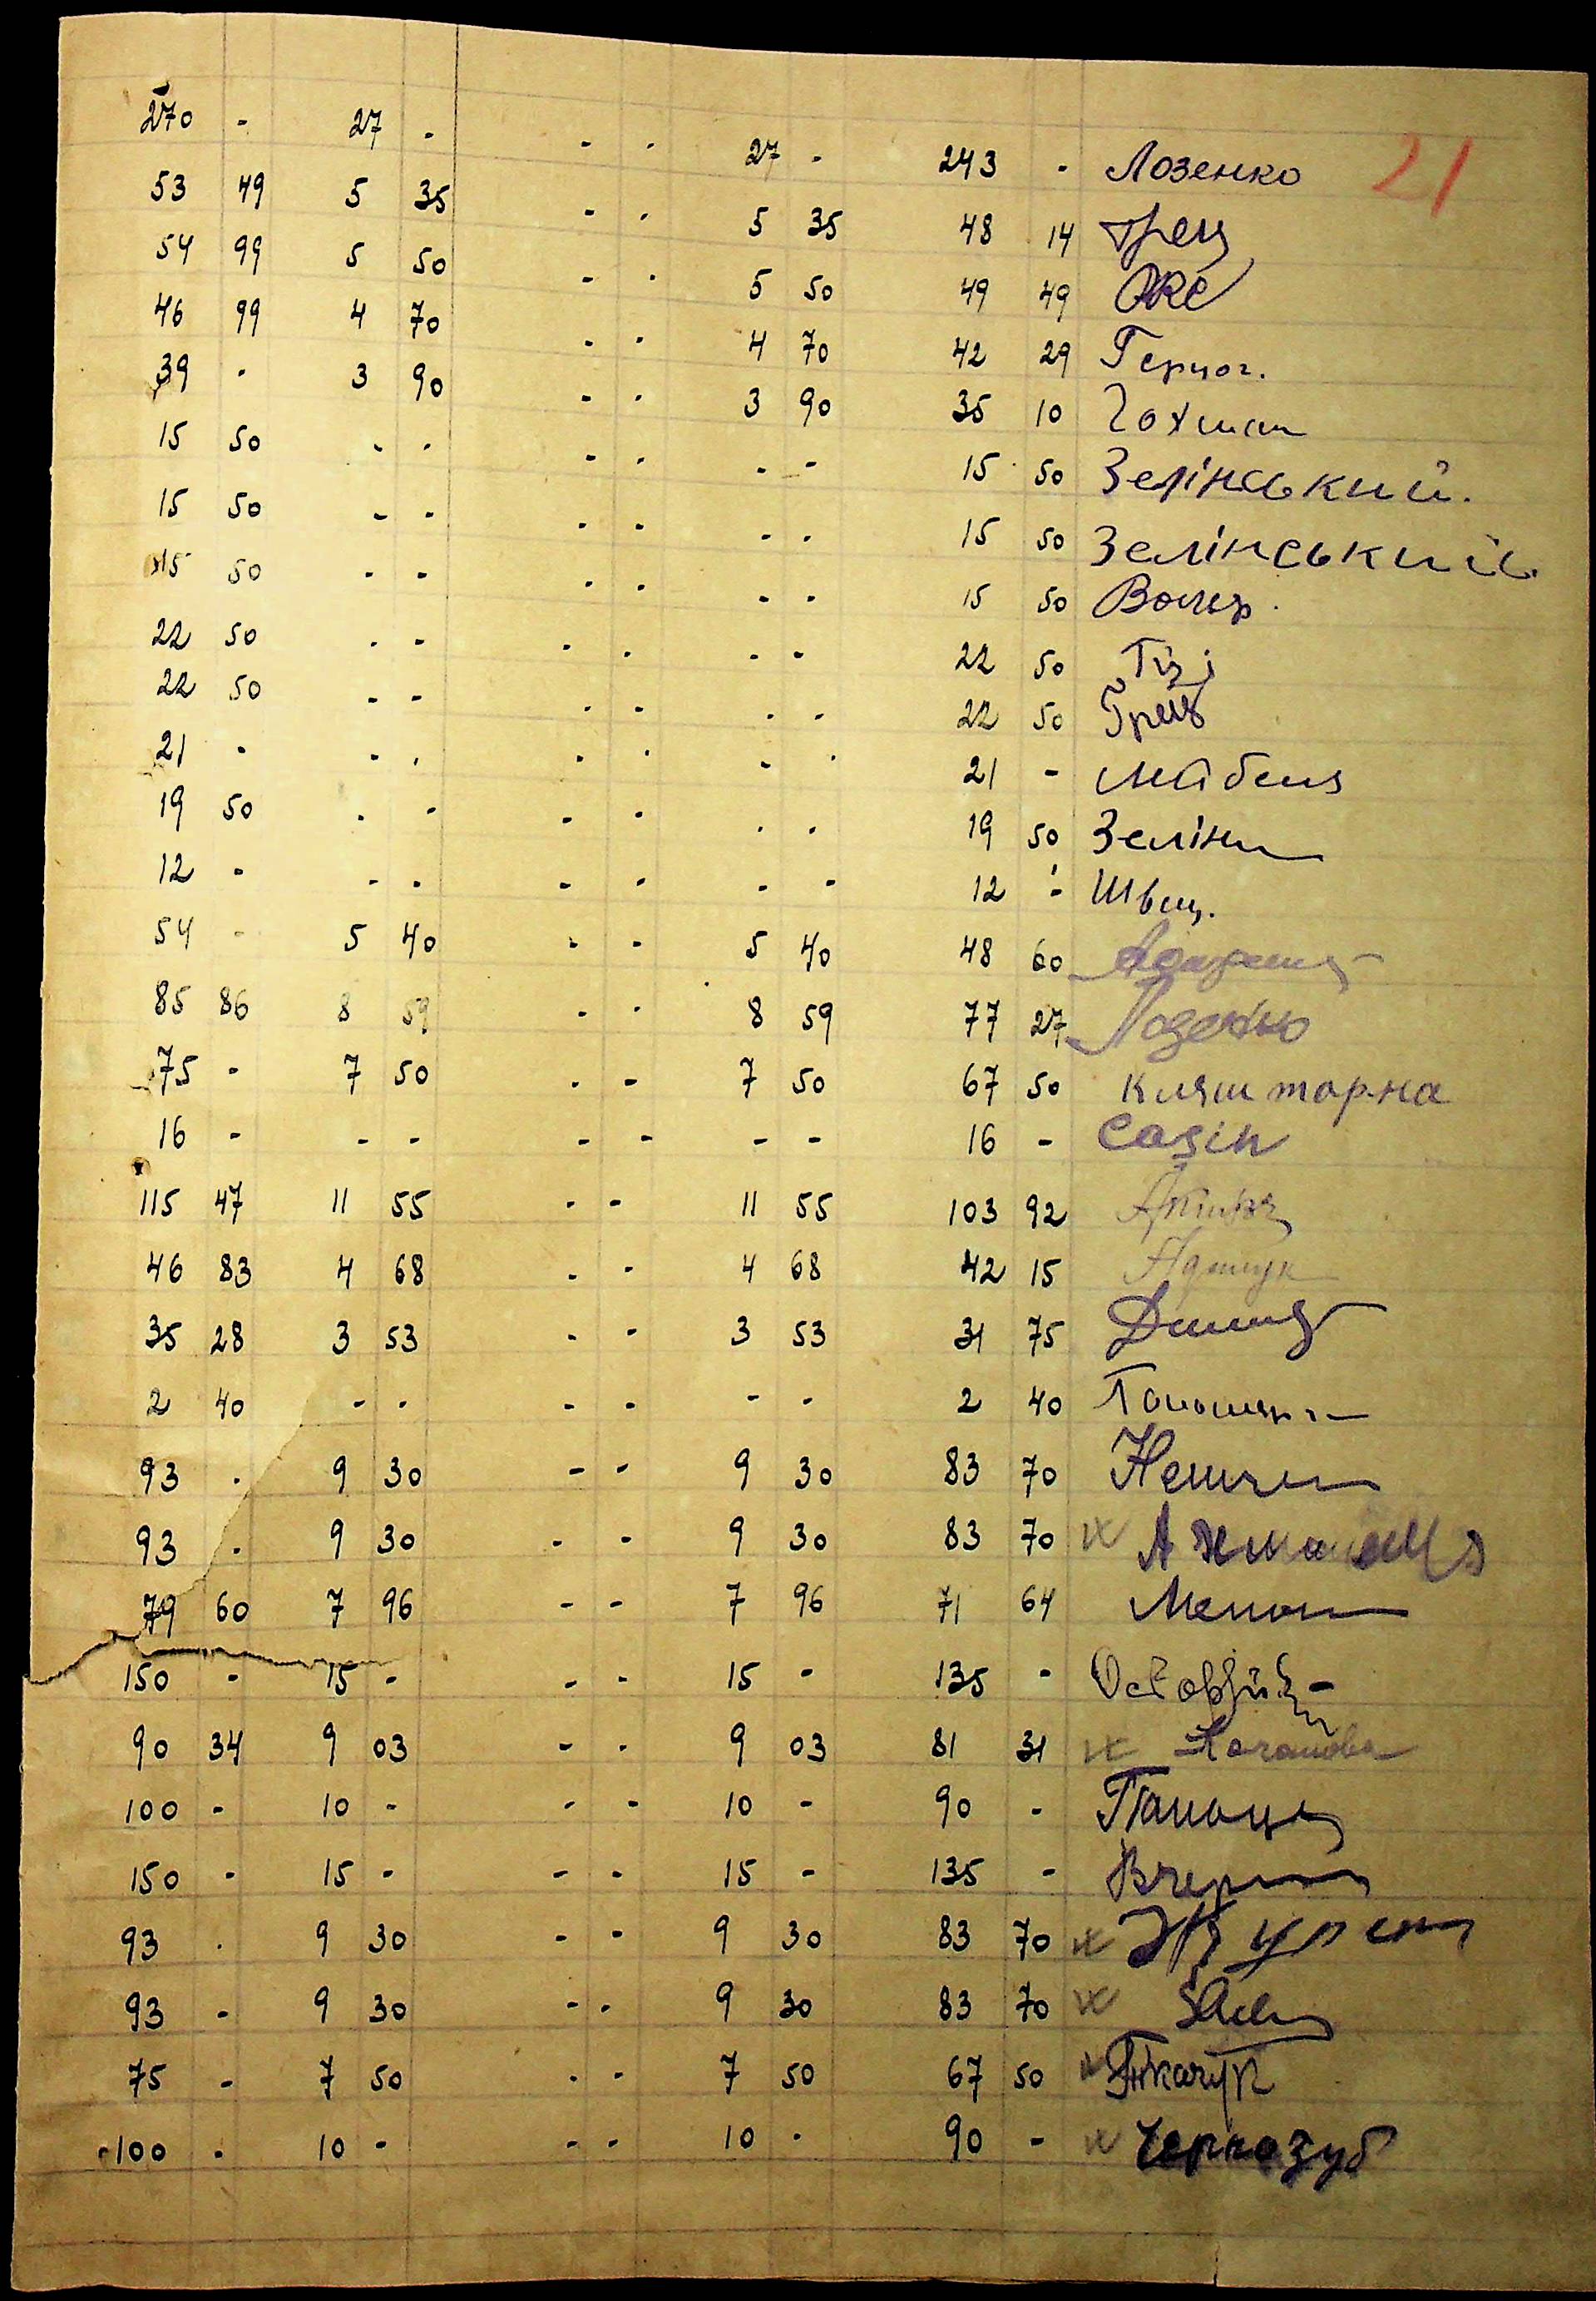 270 - 27 - - - 27 - 243 - Лозенко 21
53 49 5 35 - - 5 35 48 14
54 99 5 50 - - 5 50 49 49
46 99 4 70 - - 4 70 42 29 Герцог.
39 - 3 90 - - 3 90 35 10 Гохман
15 50 - - - - - - 15 50 Зелінський.
15 50 - - - - - - 15 50 Зелінський.
15 50 - - - - - - 15 50
22 50 - - - - - - 22 50
22 50 - - - - - - 22 50 Грец
21 - - - - - - - 21 -
19 50 - - - - - - 19 50 Зелін
12 - - - - - - - 12 - Швец.
54 - 5 40 - - 5 40 48 60
85 86 8 59 - - 8 59 77 27 Лозенко
75 - 7 50 - - 7 50 67 50 Кляшторна
16 - - - - - - - 16 -
115 47 11 55 - - 11 55 103 92
46 83 4 68 - - 4 68 42 15
35 28 3 53 - - 3 53 31 75
2 40 - - - - - - 2 40
93 - 9 30 - - 9 30 83 70
93 - 9 30 - - 9 30 83 70
79 60 7 96 - - 7 96 71 64
150 - 15 - - - 15 - 135 -
90 34 9 03 - - 9 03 81 31
100 - 10 - - - 10 - 90 -
150 - 15 - - - 15 - 135 -
93 - 9 30 - - 9 30 83 70
93 - 9 30 - - 9 30 83 70
75 - 7 50 - - 7 50 67 50 Ткачук
100 - 10 - - - 10 - 90 - Чернозуб